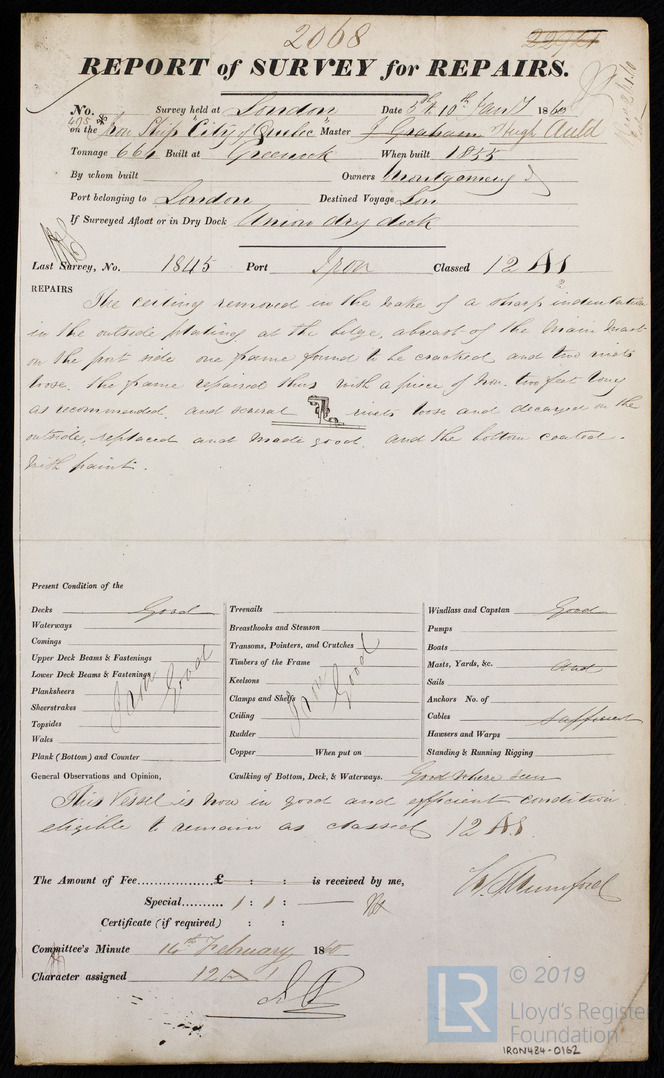 2068
REPORT of SURVEY for REPAIRS.
No. 495 Survey held at London Date 5th & 10th Jany 1860
on the Iron Ship "City of Quebec" Master J Graham Hugh Auld
Tonnage 664 Built at Greenock When built 1855
By whom built Owners Montgomery &
Port belonging to London Destined Voyage Lon
If Surveyed Afloat or in Dry Dock Union dry dock
Last Survey, No. 1845 Port Iron Classed 12 A1
REPAIRS
The ceiling removed in the wake of a sharp indentation
in the outside plating at the bilge, abreast of the Main Mast
on the port side one frame found to be cracked and two rivets
loose. The frame repaired thus with a piece of Iron two feet long
as recommended. and several rivets loose and decayed on the
outside, replaced and made good, and the bottom coated.
With paint.
Present Condition of the
Decks Good
Waterways
Comings
Upper Deck Beams & Fastenings
Lower Deck Beams & Fastenings
Planksheers
Sheerstrakes
Topsides
Wales
Plank (Bottom) and Counter
Iron Good
Treenails
Breasthooks and Stemson
Transoms, Pointers, and Crutches
Timbers of the Frame
Keelsons
Clamps and Shelfs
Ceiling
Rudder
Copper When put on
Iron Good
Windlass and Capstan Good
Pumps
Boats
Masts, Yards, &c. and
Sails
Anchors No. of
Cables sufficient
Hawsers and Warps
Standing & Running Rigging
General Observations and Opinion, Caulking of Bottom, Deck, & Waterways. Good where seen
This Vessel is now in good and efficient condition
eligible to remain as classed 12 A1
The Amount of Fee £ : : is received by me,
Special 1 : 1 :
Certificate (if required) : :
Committee's Minute 14th February 1860
Character assigned 12 A 1
© 2019
LR
Lloyd's Register
Foundation
IRON484-0162